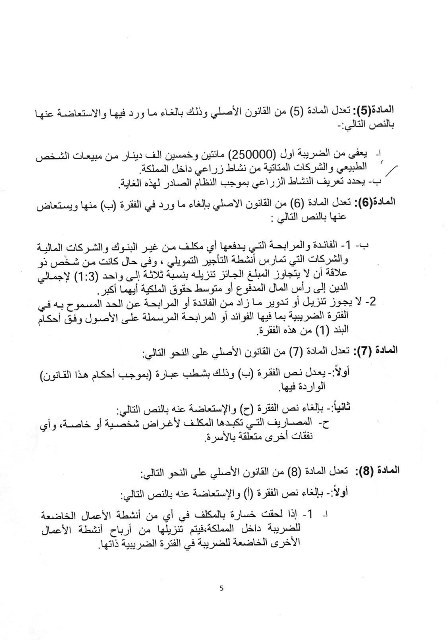 المادة(5): تعدل المادة (5) من القانون الأصلي وذلك بالغاء ما ورد فيها والاستعاضة عنها
بالنص التالي:-
أ. يعفى من الضريبة اول (250000) مائتين وخمسين الف دينار من مبيعات الشخص
الطبيعي والشركات المتاتية من نشاط زراعي داخل المملكة.
ب- يحدد تعريف النشاط الزراعي بموجب النظام الصادر لهذه الغاية.
المادة(6): تعدل المادة (6) من القانون الأصلي بإلغاء ما ورد في الفقرة (ب) منها ويستعاض
عنها بالنص التالي :
ب- 1- الفائدة والمرابحة التي يدفعها أي مكلف من غير البنوك والشركات المالية
والشركات التي تمارس أنشطة التأجير التمويلي ، وفي حال كانت من شخص ذو
علاقة أن لا يتجاوز المبلغ الجائز تنزيله بنسبة ثلاثة إلى واحد (1:3) لإجمالي
الدين إلى رأس المال المدفوع أو متوسط حقوق الملكية أيهما أكبر.
2- لا يجوز تنزيل أو تدوير ما زاد من الفائدة أو المرابحة عن الحد المسموح به في
الفترة الضريبية بما فيها الفوائد أو المرابحة المرسملة على الأصول وفق أحكام
البند (1) من هذه الفقرة.
المادة (7): تعدل المادة (7) من القانون الأصلي على النحو التالي:
أولاً:- يعدل نص الفقرة (ب) وذلك بشطب عبارة (بموجب أحكام هذا القانون)
الواردة فيها.
ثانياً:- بإلغاء نص الفقرة (ح) والإستعاضة عنه بالنص التالي:
ح- المصاريف التي تكبدها المكلف لأغراض شخصية أو خاصة، وأي
نفقات أخرى متعلقة بالأسرة.
المادة (8): تعدل المادة (8) من القانون الأصلي على النحو التالي:
أولاً:- بإلغاء نص الفقرة (أ) والإستعاضة عنه بالنص التالي:
أ. 1- إذا لحقت خسارة بالمكلف في أي من أنشطة الأعمال الخاضعة
للضريبة داخل المملكة،فيتم تنزيلها من أرباح أنشطة الأعمال
الأخرى الخاضعة للضريبة في الفترة الضريبية ذاتها.
5